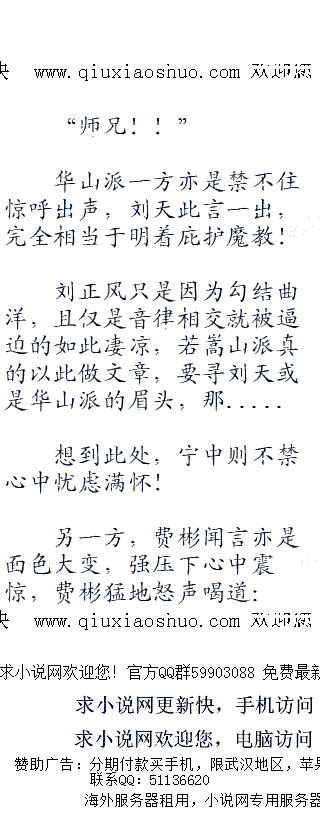 快 www.qiuxiaoshuo.com 欢迎您
“师兄！！”
华山派一方亦是禁不住
惊呼出声，刘天此言一出，
完全相当于明着庇护魔教！
刘正风只是因为勾结曲
洋，且仅是音律相交就被逼
迫的如此凄凉，若嵩山派真
的以此做文章，要寻刘天或
是华山派的眉头，那.....
想到此处，宁中则不禁
心中忧虑满怀！
另一方，费彬闻言亦是
面色大变，强压下心中震
惊，费彬猛地怒声喝道：
快 www.qiuxiaoshuo.com 欢迎您
求小说网欢迎您！官方QQ群59903088 免费最新
求小说网更新快，手机访问
求小说网欢迎您，电脑访问
赞助广告：分期付款买手机，限武汉地区，苹果
联系QQ：51136620
海外服务器租用，小说网专用服务器